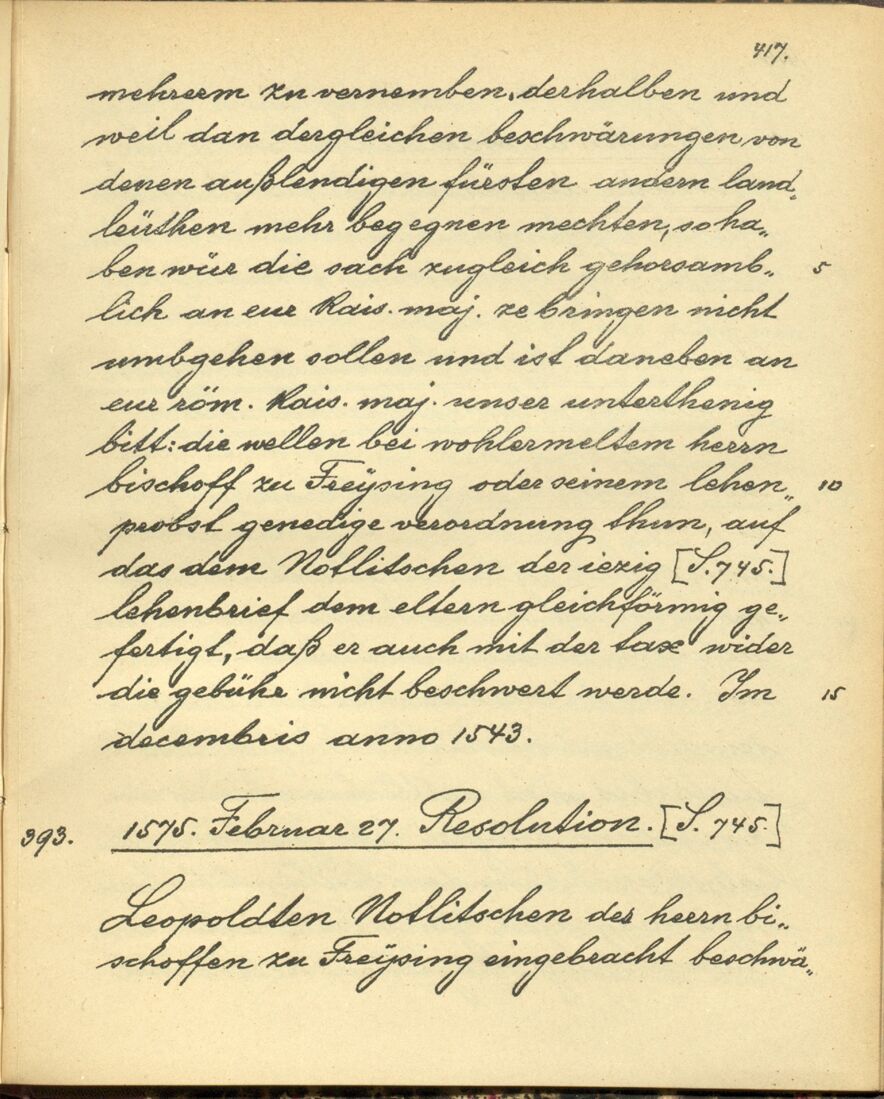 417.
mehrerm zu vernemben, derhalben und
weil dan dergleichen beschwärungen von
denen außlendigen fürsten andern land„
leüthen mehr begegnen mechten, so ha„
ben wür die sach zugleich gehorsamb„ 5
lich an eur Kais. maj. ze bringen nicht
umbgehen sollen und ist daneben an
eur röm. Kais. maj. unser unterthenig
bitt: die wellen bei wohlermeltem herrn
bischoff zu Freÿsing oder seinem lehen„ 10
probst genedige verordnung thun, auf
das dem Notlitschen der iezig [S. 745.]
lehenbrief dem eltern gleichförmig ge„
fertigt, daß er auch mit der tax wider
die gebühr nicht beschwert werde. Im 15
decembris anno 1543.
393. 1575. Februar 27. Resolution. [S. 745.]
Leopoldten Notlitschen des herrn bi„
schoffen zu Freÿsing eingebracht beschwä„